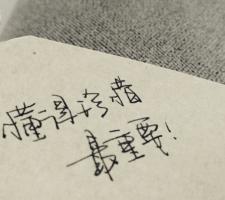 懂得珍惜
最重要！